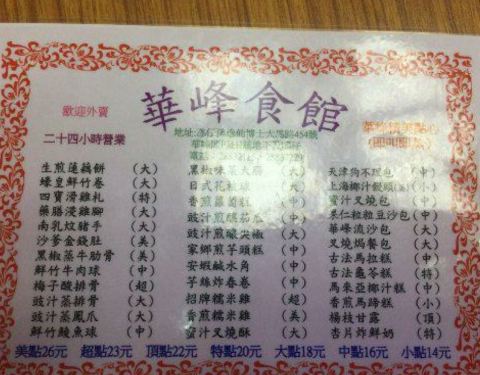 華峰食館
歡迎外賣
二十四小時營業
華
點心
生煎蓮藕餅 (大)
蠔皇鮮竹卷 (大)
四寶滑雞札 (特)
藥膳浸雞腳 (大)
南乳炆豬手 (大)
沙爹金錢肚 (美)
黑椒蒸牛肋骨 (美)
鮮竹牛肉球 (中)
梅子酸排骨 (超)
豉汁蒸排骨 (大)
豉汁蒸鳳爪 (大)
鮮竹鯪魚球 (中)
黑椒味 (大)
日式花枝 (大)
香煎蘿蔔糕 (中)
豉汁煎釀茄瓜 (中)
豉汁煎釀尖椒 (大)
家鄉煎芋頭糕 (中)
安蝦鹹水角 (中)
芋絲炸春卷 (中)
招牌糯米雞 (超)
香煎糯米雞 (美)
蜜汁叉燒酥 (大)
天津狗不理包 (中)
上海椰汁饅頭 (小)
蜜汁叉燒包 (中)
果仁粒粒豆沙包 (中)
華峰流沙包 (大)
叉燒焗餐包 (大)
古法馬拉糕 (中)
古法龜苓糕 (特)
馬來亞椰汁糕 (中)
香煎馬蹄糕 (小)
楊枝甘露 (頂)
杏片炸鮮奶 (特)
美點26元 超點23元 頂點22元 特點20元 大點18元 中點16元 小點14元